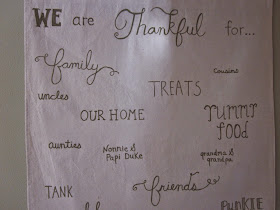 WE are Thankful for...
family
cousins
uncles
TREATS
OUR HOME
YUMMY
FOOD
aunties
Nonnie &
Papi Duke
grandma &
grandpa
TANK
friends